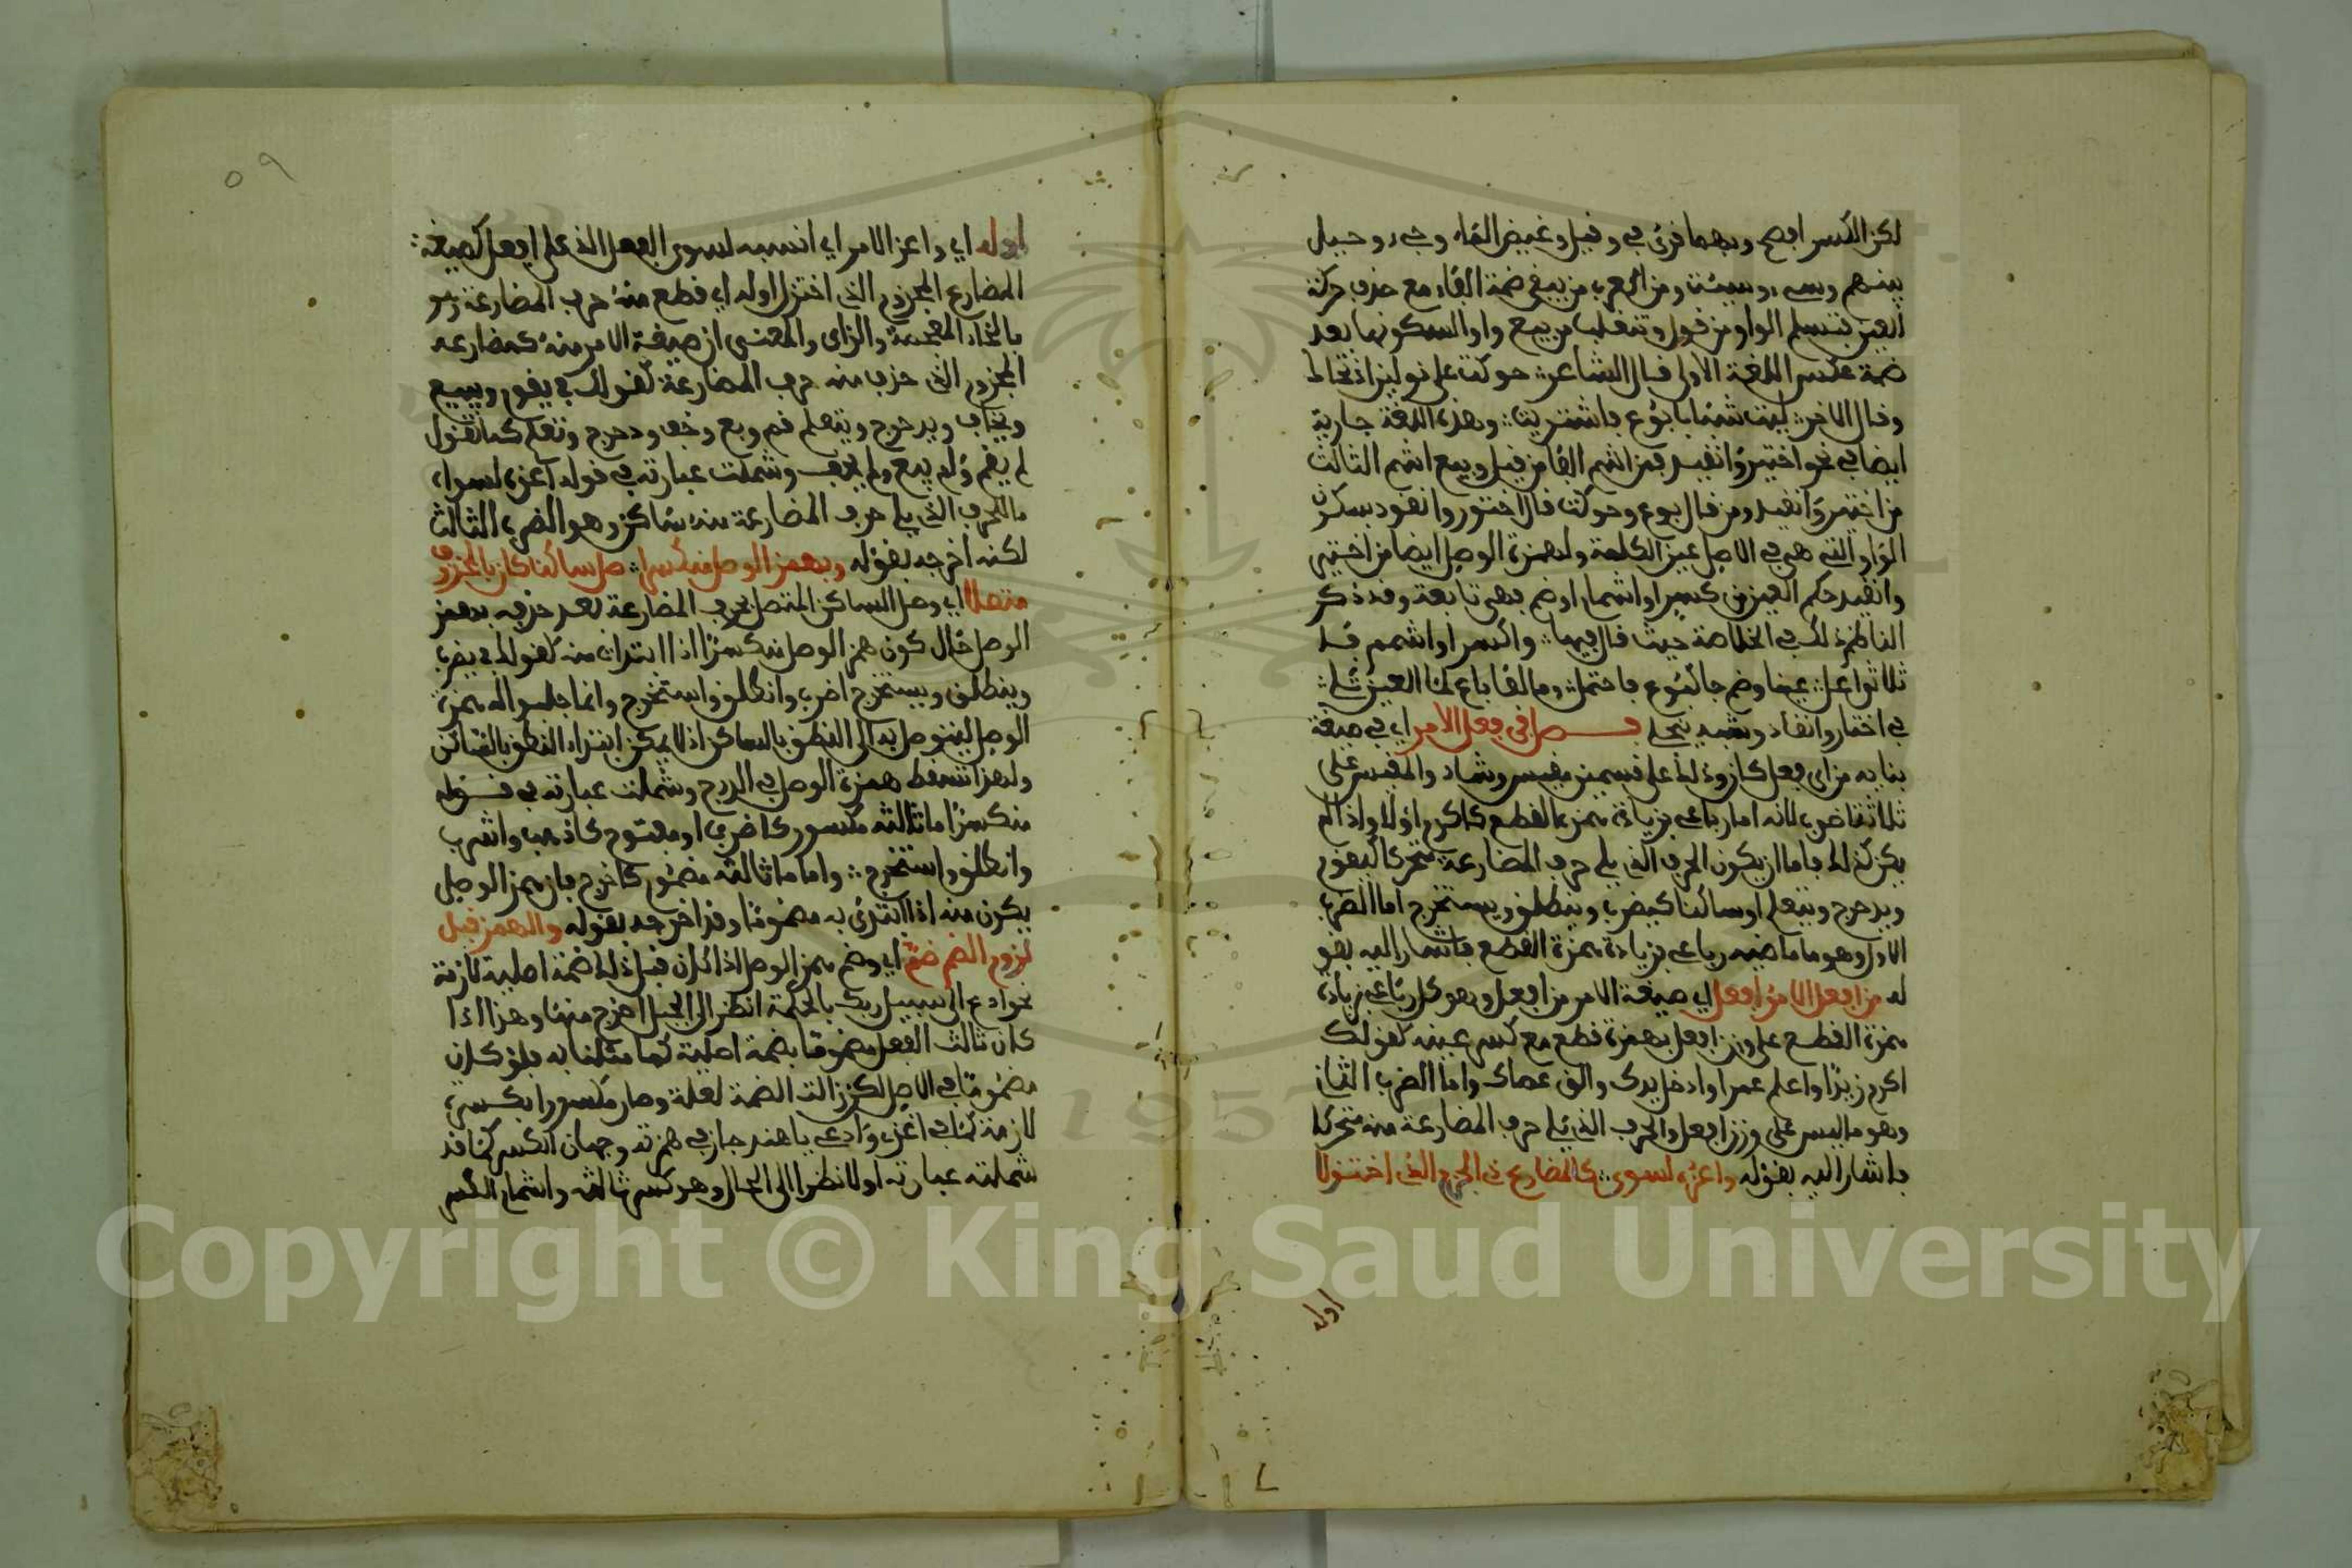 لكن الكسر افصح وبهما قرئ في وقيل وغيض الماء وجيء وحيل
بينهم وسيء وسيئت ومن العرب من يبقى ضمة الفاء مع حذف حركة
العين فتسلم الواو من قول وتنقلب من بيع واوا لسكونها بعد
ضمة عكس اللغة الاولى قال الشاعر حوكت على نولين اذ تحاك
وقال الاخر ليت شبابا بوع فاشتريت وهذه اللغة جارية
ايضا في نحو اختير وانقيد فمن اشم الفا من قيل وبيع اشم الثالث
من اختير وانقيد ومن قال بوع وحوكت قال اختور وانقود بسكون
الواو التي هي في الاصل عين الكلمة ولهمزة الوصل ايضا من اختير
وانقيد حكم العين من كسر او اشمام او ضم فهي تابعة وقد ذكر
الناظم ذلك في الخلاصة حيث قال فيها واكسر او اشمم فا
ثلاثي اعل عينا وضم جا كبوع فاحتمل وما لفا باع لما العين تلي
في اختار وانقاد وشبه ينجلي فصل في فعل الامر اي في صيغة
بنايه من اي فعل كان وذلك على قسمين مقيس وشاذ والمقيس على
ثلاثة اضرب لانه اما رباعي بزيادة همزة القطع كاكرم اولا واذا لم
يكن كذلك فاما ان يكون الحرف الذي يلي حرف المضارعة متحركا كيقوم
ويدحرج ويتعلم او ساكنا كيضرب وينطلق ويستخرج اما الضرب
الاول وهو ما ماضيه رباعي بزيادة همزة القطع فاشار اليه بقو
له من افعل الامر افعل اي صيغة الامر من افعل وهو كل رباعي بزيادة
همزة القطع على وزن افعل بهمزة قطع مع كسر عينه كقولك
اكرم زيدا واعلم عمرا وادخل يدك والق عصاك واما الضرب الثاني
وهو ما ليس على وزن افعل والحرف الذي يلي حرف المضارعة منه متحرك
فاشار اليه بقوله واعزه لسوى كالمضارع ذي الجزم الذي اختزلا
اوله
اوله اي واعز الامر اي انسبه لسوى الفعل الذي على افعل كصيغة
المضارع المجزوم الذي اختزل اوله اي قطع منه حرف المضارعة وهو
بالخاء المعجمة والزاي والمعنى ان صيغة الامر منه كمضارعه
المجزوم الذي حذف منه حرف المضارعة كقولك في يقوم ويبيع
ويخاف ويدحرج ويتعلم قم وبع وخف ودحرج وتعلم كما تقول
لم يقم ولم يبع ولم يخف وشملت عبارته في قوله اعزه لسواه
ما الحرف الذي يلي حرف المضارعة منه ساكن وهو الضرب الثالث
لكنه اخرجه بقوله وبهمز الوصل منكسرا صل ساكنا كان بالمحذوف
متصلا اي وصل الساكن المتصل بحرف المضارعة بعد حذفه بهمز
الوصل حال كون همز الوصل منكسرا اذا ابتدات منه كقولك في يضرب
وينطلق ويستخرج اضرب وانطلق واستخرج وانما جلبوا له همزة
الوصل ليتوصل به الى النطق بالساكن اذ لا يمكن ابتداء النطق بالساكن
ولهذا تسقط همزة الوصل في الدرج وشملت عبارته في قوله
منكسرا ما ثالثه مكسور كاضرب او مفتوح كاذهب واشرب
وانطلق واستخرج واما ما ثالثه مضموم كاخرج فان همز الوصل
يكون منه اذا ابتدئ به مضموما وقد اخرجه بقوله والهمز قبل
لزوم الضم ضم اي وضم همز الوصل اذا كان قبل ذلك ضمة اصلية لازمة
نحو ادع الى سبيل ربك بالحكمة انظر الى الجبل اخرج منها وهذا اذا
كان ثالث الفعل مضموما بضمة اصلية كما مثلنا به فلو كان
مضموما في الاصل لكن زالت الضمة لعلة وصار مكسورا بكسرة
لازمة كما في اغزي وادعي يا هند جاز في همزته وجهان الكسر كما قد
شملته عبارته اولا نظرا الى الحال وهو كسر ثالثه واشمام الكسر